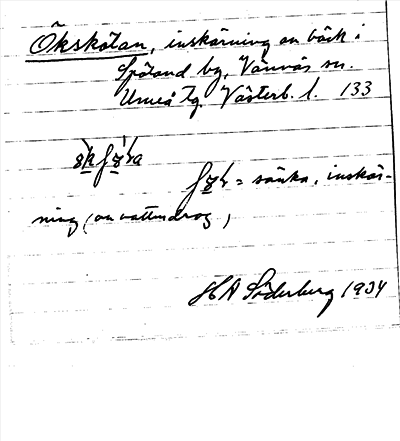 Ökskötan, inskärning av bäck i
Spöland by, Vännäs sn.
Umeå tg. Västerb. l. 133
= sänka, inskär-
ning (av vattendrag)
HA Söderberg 1934